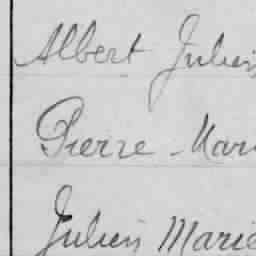 Albert Julien
Pierre Mari
Julien Marie